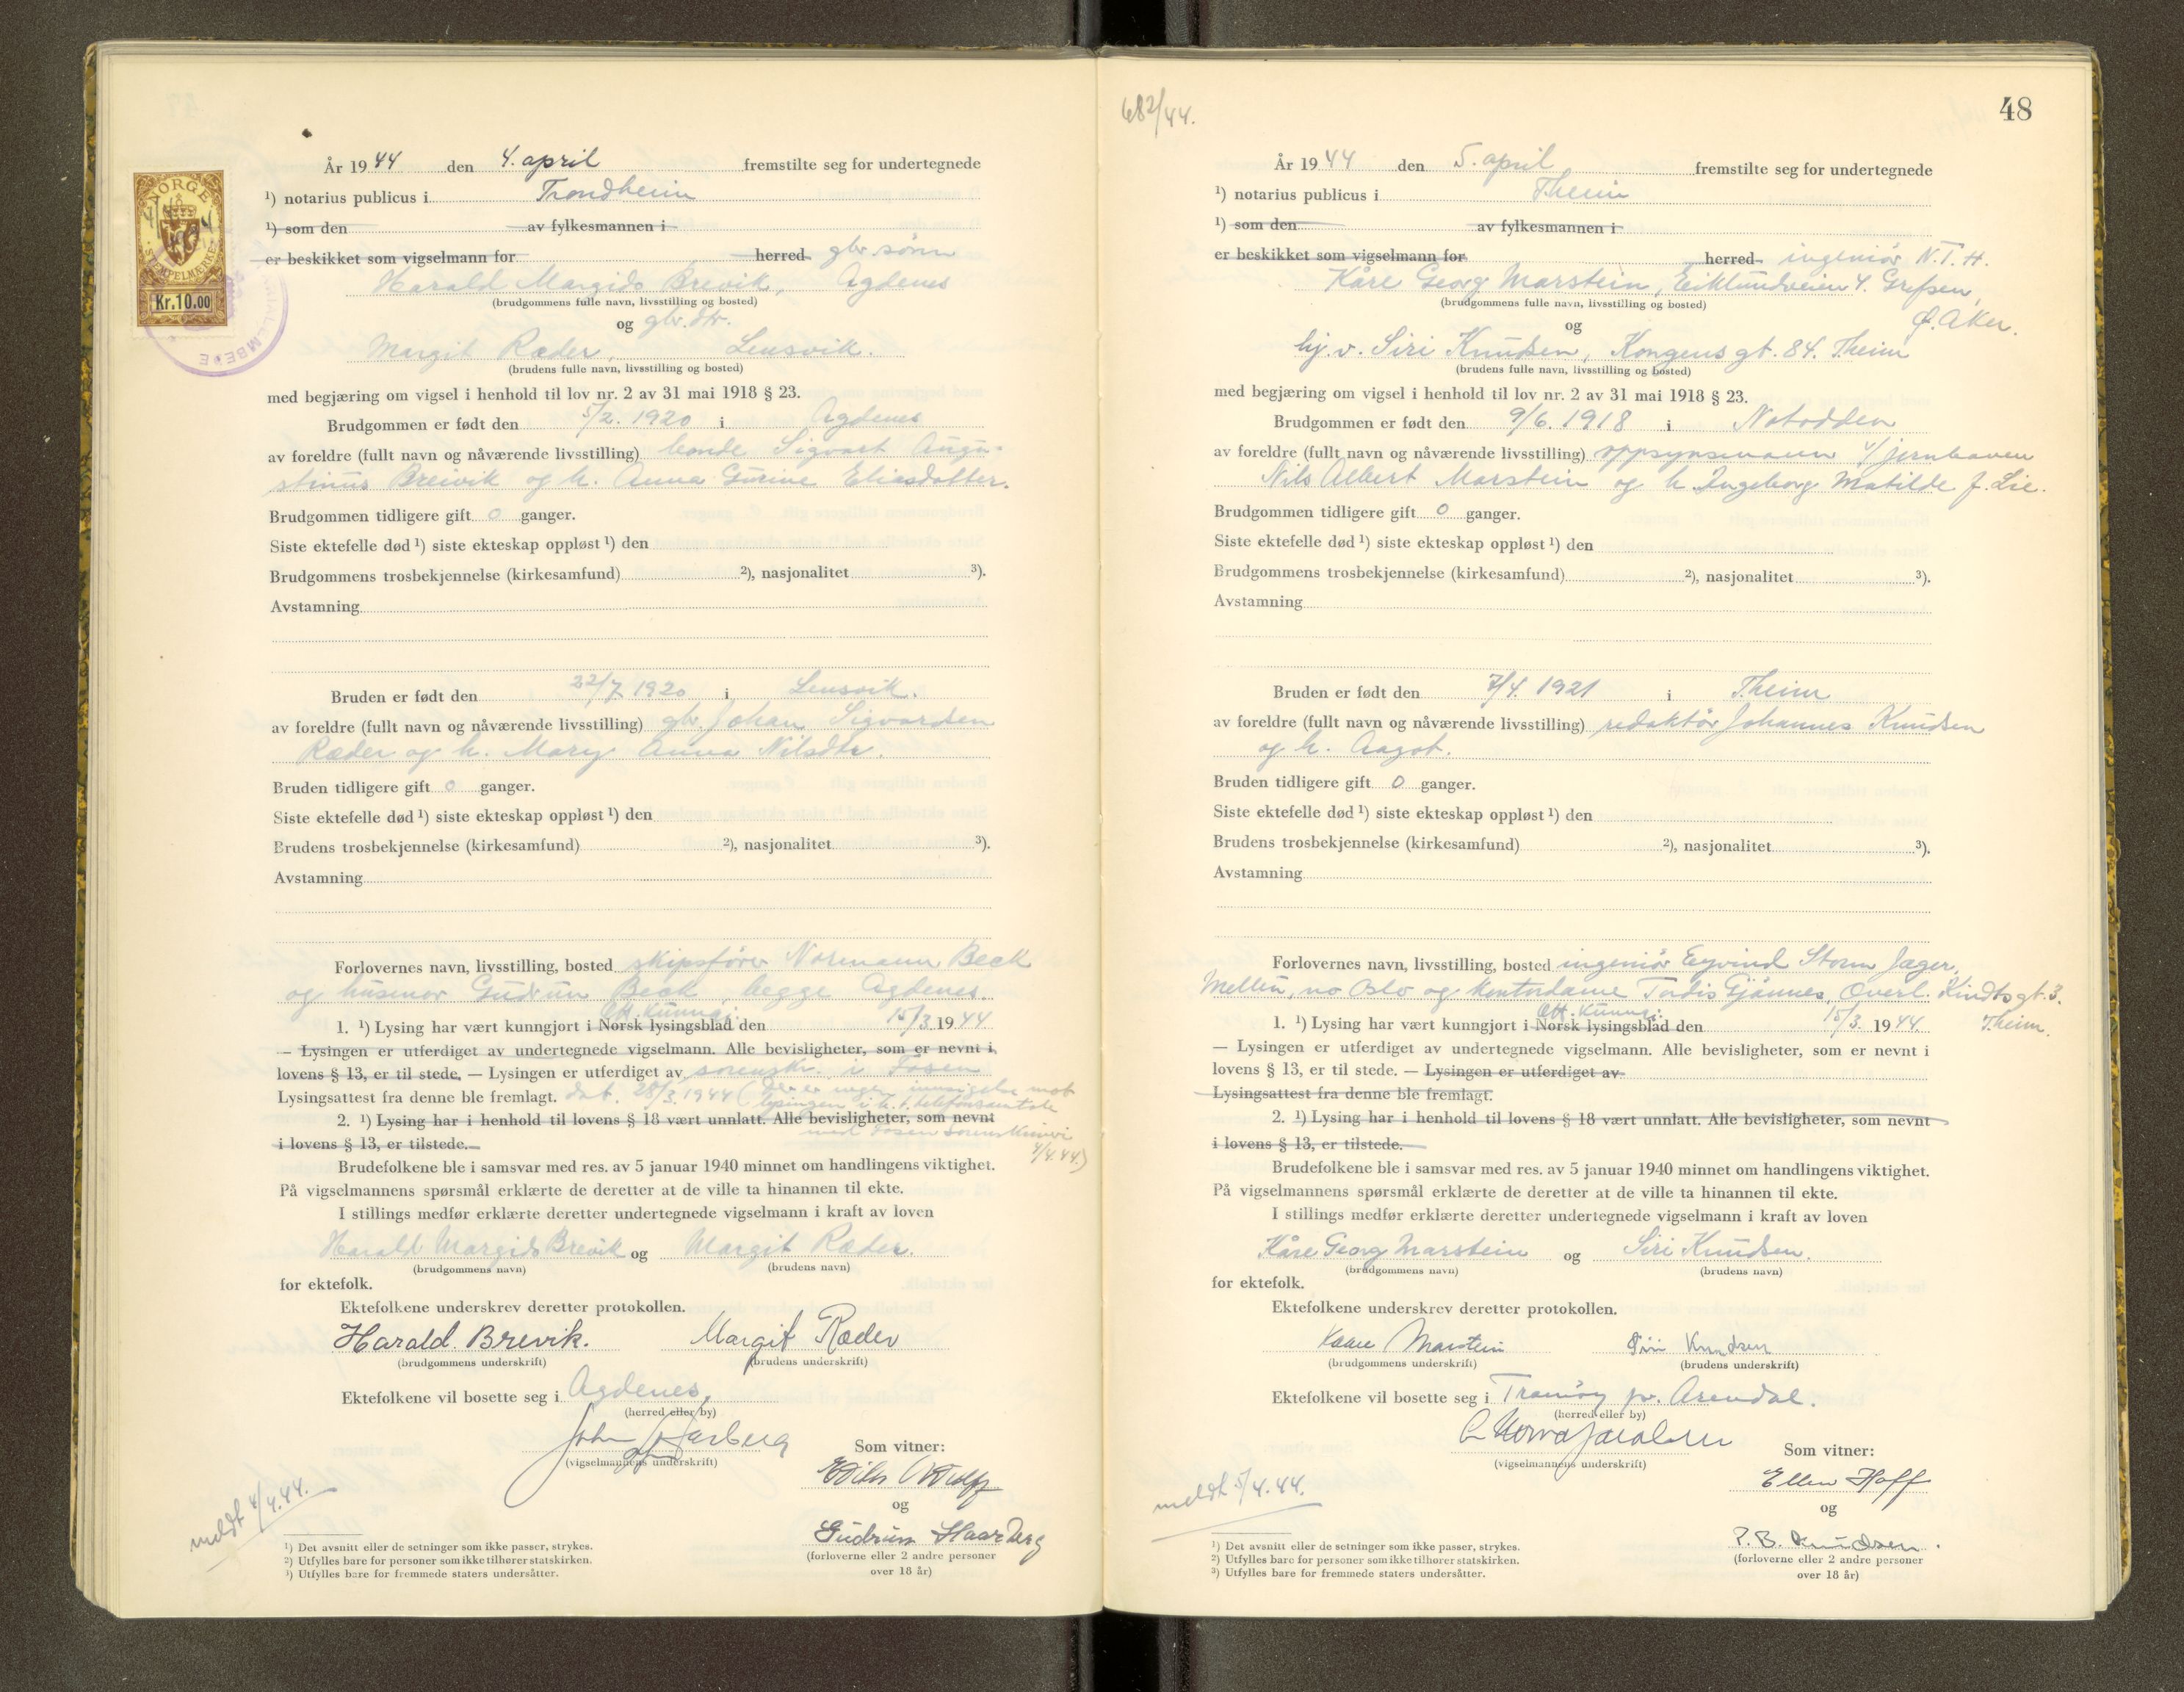 År 1944 den 4. april fremstilte seg for undertegnede
¹) notarius publicus i Trondheim
¹) som den av fylkesmannen i
er beskikket som vigselmann for herred gbr.sønn
Harald Margido Brevik, Agdenes
(brudgommens fulle navn, livsstilling og bosted)
og gbr.dtr.
Margit Ræder, Lensvik.
(brudens fulle navn, livsstilling og bosted)
med begjæring om vigsel i henhold til lov nr. 2 av 31 mai 1918 § 23.
Brudgommen er født den 5/2. 1920 i Agdenes
av foreldre (fullt navn og nåværende livsstilling) bonde Sigvart Augu-
stinus Breivik og h. Anna Gurine Eliasdatter.
Brudgommen tidligere gift 0 ganger.
Siste ektefelle død ¹) siste ekteskap oppløst ¹) den
Brudgommens trosbekjennelse (kirkesamfund) ²), nasjonalitet ³).
Avstamning
Bruden er født den 22/7 1920 i Lensvik.
av foreldre (fullt navn og nåværende livsstilling) gbr. Johan Sigvardsen
Ræder og h. Mary Anna Nilsdtr.
Bruden tidligere gift 0 ganger.
Siste ektefelle død ¹) siste ekteskap oppløst ¹) den
Brudens trosbekjennelse (kirkesamfund) ²), nasjonalitet ³).
Avstamning
Forlovernes navn, livsstilling, bosted skipsfører Normann Beck
og husmor Gudrun Beck, begge Agdenes.
Off. kunngj.
1. ¹) Lysing har vært kunngjort i Norsk lysingsblad den 15/3 1944
— Lysingen er utferdiget av undertegnede vigselmann. Alle bevisligheter, som er nevnt i
lovens § 13, er til stede. — Lysingen er utferdiget av sorenskr. i Fosen
Lysingsattest fra denne ble fremlagt. dat. 28/3 1944 (Der er ingen innsigelse mot
lysingen i h. t. telefonsamtale
2. ¹) Lysing har i henhold til lovens § 18 vært unnlatt. Alle bevisligheter, som nevnt
med Fosen Sorenskriveri
i lovens § 13, er tilstede. — 4/4.44.)
Brudefolkene ble i samsvar med res. av 5 januar 1940 minnet om handlingens viktighet.
På vigselmannens spørsmål erklærte de deretter at de ville ta hinannen til ekte.
I stillings medfør erklærte deretter undertegnede vigselmann i kraft av loven
Harald Margido Brevik og Margit Ræder.
(brudgommens navn) (brudens navn)
for ektefolk.
Ektefolkene underskrev deretter protokollen.
Harald. Brevik. Margit Ræder
(brudgommens underskrift) (brudens underskrift)
Ektefolkene vil bosette seg i Agdenes.
(herred eller by)
John Haarberg
(vigselmannens underskrift)
Som vitner:
og
Gudrun Haarberg
(forloverne eller 2 andre personer
over 18 år)
meldt 4/4.44.
¹) Det avsnitt eller de setninger som ikke passer, strykes.
²) Utfylles bare for personer som ikke tilhører statskirken.
³) Utfylles bare for fremmede staters undersåtter.
NORGE
STEMPELMERKE
Kr.10.00
682/44.
48
År 1944 den 5. april fremstilte seg for undertegnede
¹) notarius publicus i T.heim
¹) som den av fylkesmannen i
er beskikket som vigselmann for herred ingeniør N.T.H.
Kåre Georg Marstein, Eiklundveien 4. Grefsen,
(brudgommens fulle navn, livsstilling og bosted)
Ø. Aker.
og
hj.v. Siri Knudsen, Kongens gt. 84. T.heim
(brudens fulle navn, livsstilling og bosted)
med begjæring om vigsel i henhold til lov nr. 2 av 31 mai 1918 § 23.
Brudgommen er født den 9/6. 1918 i Notodden
av foreldre (fullt navn og nåværende livsstilling) oppsynsmann v/jernhaven
Nils Albert Marstein og h. Ingeborg Matilde f. Lie.
Brudgommen tidligere gift 0 ganger.
Siste ektefelle død ¹) siste ekteskap oppløst ¹) den
Brudgommens trosbekjennelse (kirkesamfund) ²), nasjonalitet ³).
Avstamning
Bruden er født den 7/4. 1921 i T.heim
av foreldre (fullt navn og nåværende livsstilling) redaktør Johannes Knudsen
og h. Aagot.
Bruden tidligere gift 0 ganger.
Siste ektefelle død ¹) siste ekteskap oppløst ¹) den
Brudens trosbekjennelse (kirkesamfund) ²), nasjonalitet ³).
Avstamning
Forlovernes navn, livsstilling, bosted ingeniør Eyvind Storm Jæger,
Mellin, no Oslo og kontordame Tordis Gjønnes, Overl. Kindtsgt. 3.
T.heim.
Off. kunngj.
1. ¹) Lysing har vært kunngjort i Norsk lysingsblad den 15/3. 1944.
— Lysingen er utferdiget av undertegnede vigselmann. Alle bevisligheter, som er nevnt i
lovens § 13, er til stede. — Lysingen er utferdiget av
Lysingsattest fra denne ble fremlagt.
2. ¹) Lysing har i henhold til lovens § 18 vært unnlatt. Alle bevisligheter, som nevnt
i lovens § 13, er tilstede.
Brudefolkene ble i samsvar med res. av 5 januar 1940 minnet om handlingens viktighet.
På vigselmannens spørsmål erklærte de deretter at de ville ta hinannen til ekte.
I stillings medfør erklærte deretter undertegnede vigselmann i kraft av loven
Kåre Georg Marstein og Siri Knudsen.
(brudgommens navn) (brudens navn)
for ektefolk.
Ektefolkene underskrev deretter protokollen.
Kaare Marstein Siri Knudsen
(brudgommens underskrift) (brudens underskrift)
Ektefolkene vil bosette seg i Tromøy pr. Arendal.
(herred eller by)
(vigselmannens underskrift)
Som vitner:
Ellen Hoff
og
P. B. Knudsen.
(forloverne eller 2 andre personer
over 18 år)
meldt 5/4.44.
¹) Det avsnitt eller de setninger som ikke passer, strykes.
²) Utfylles bare for personer som ikke tilhører statskirken.
³) Utfylles bare for fremmede staters undersåtter.